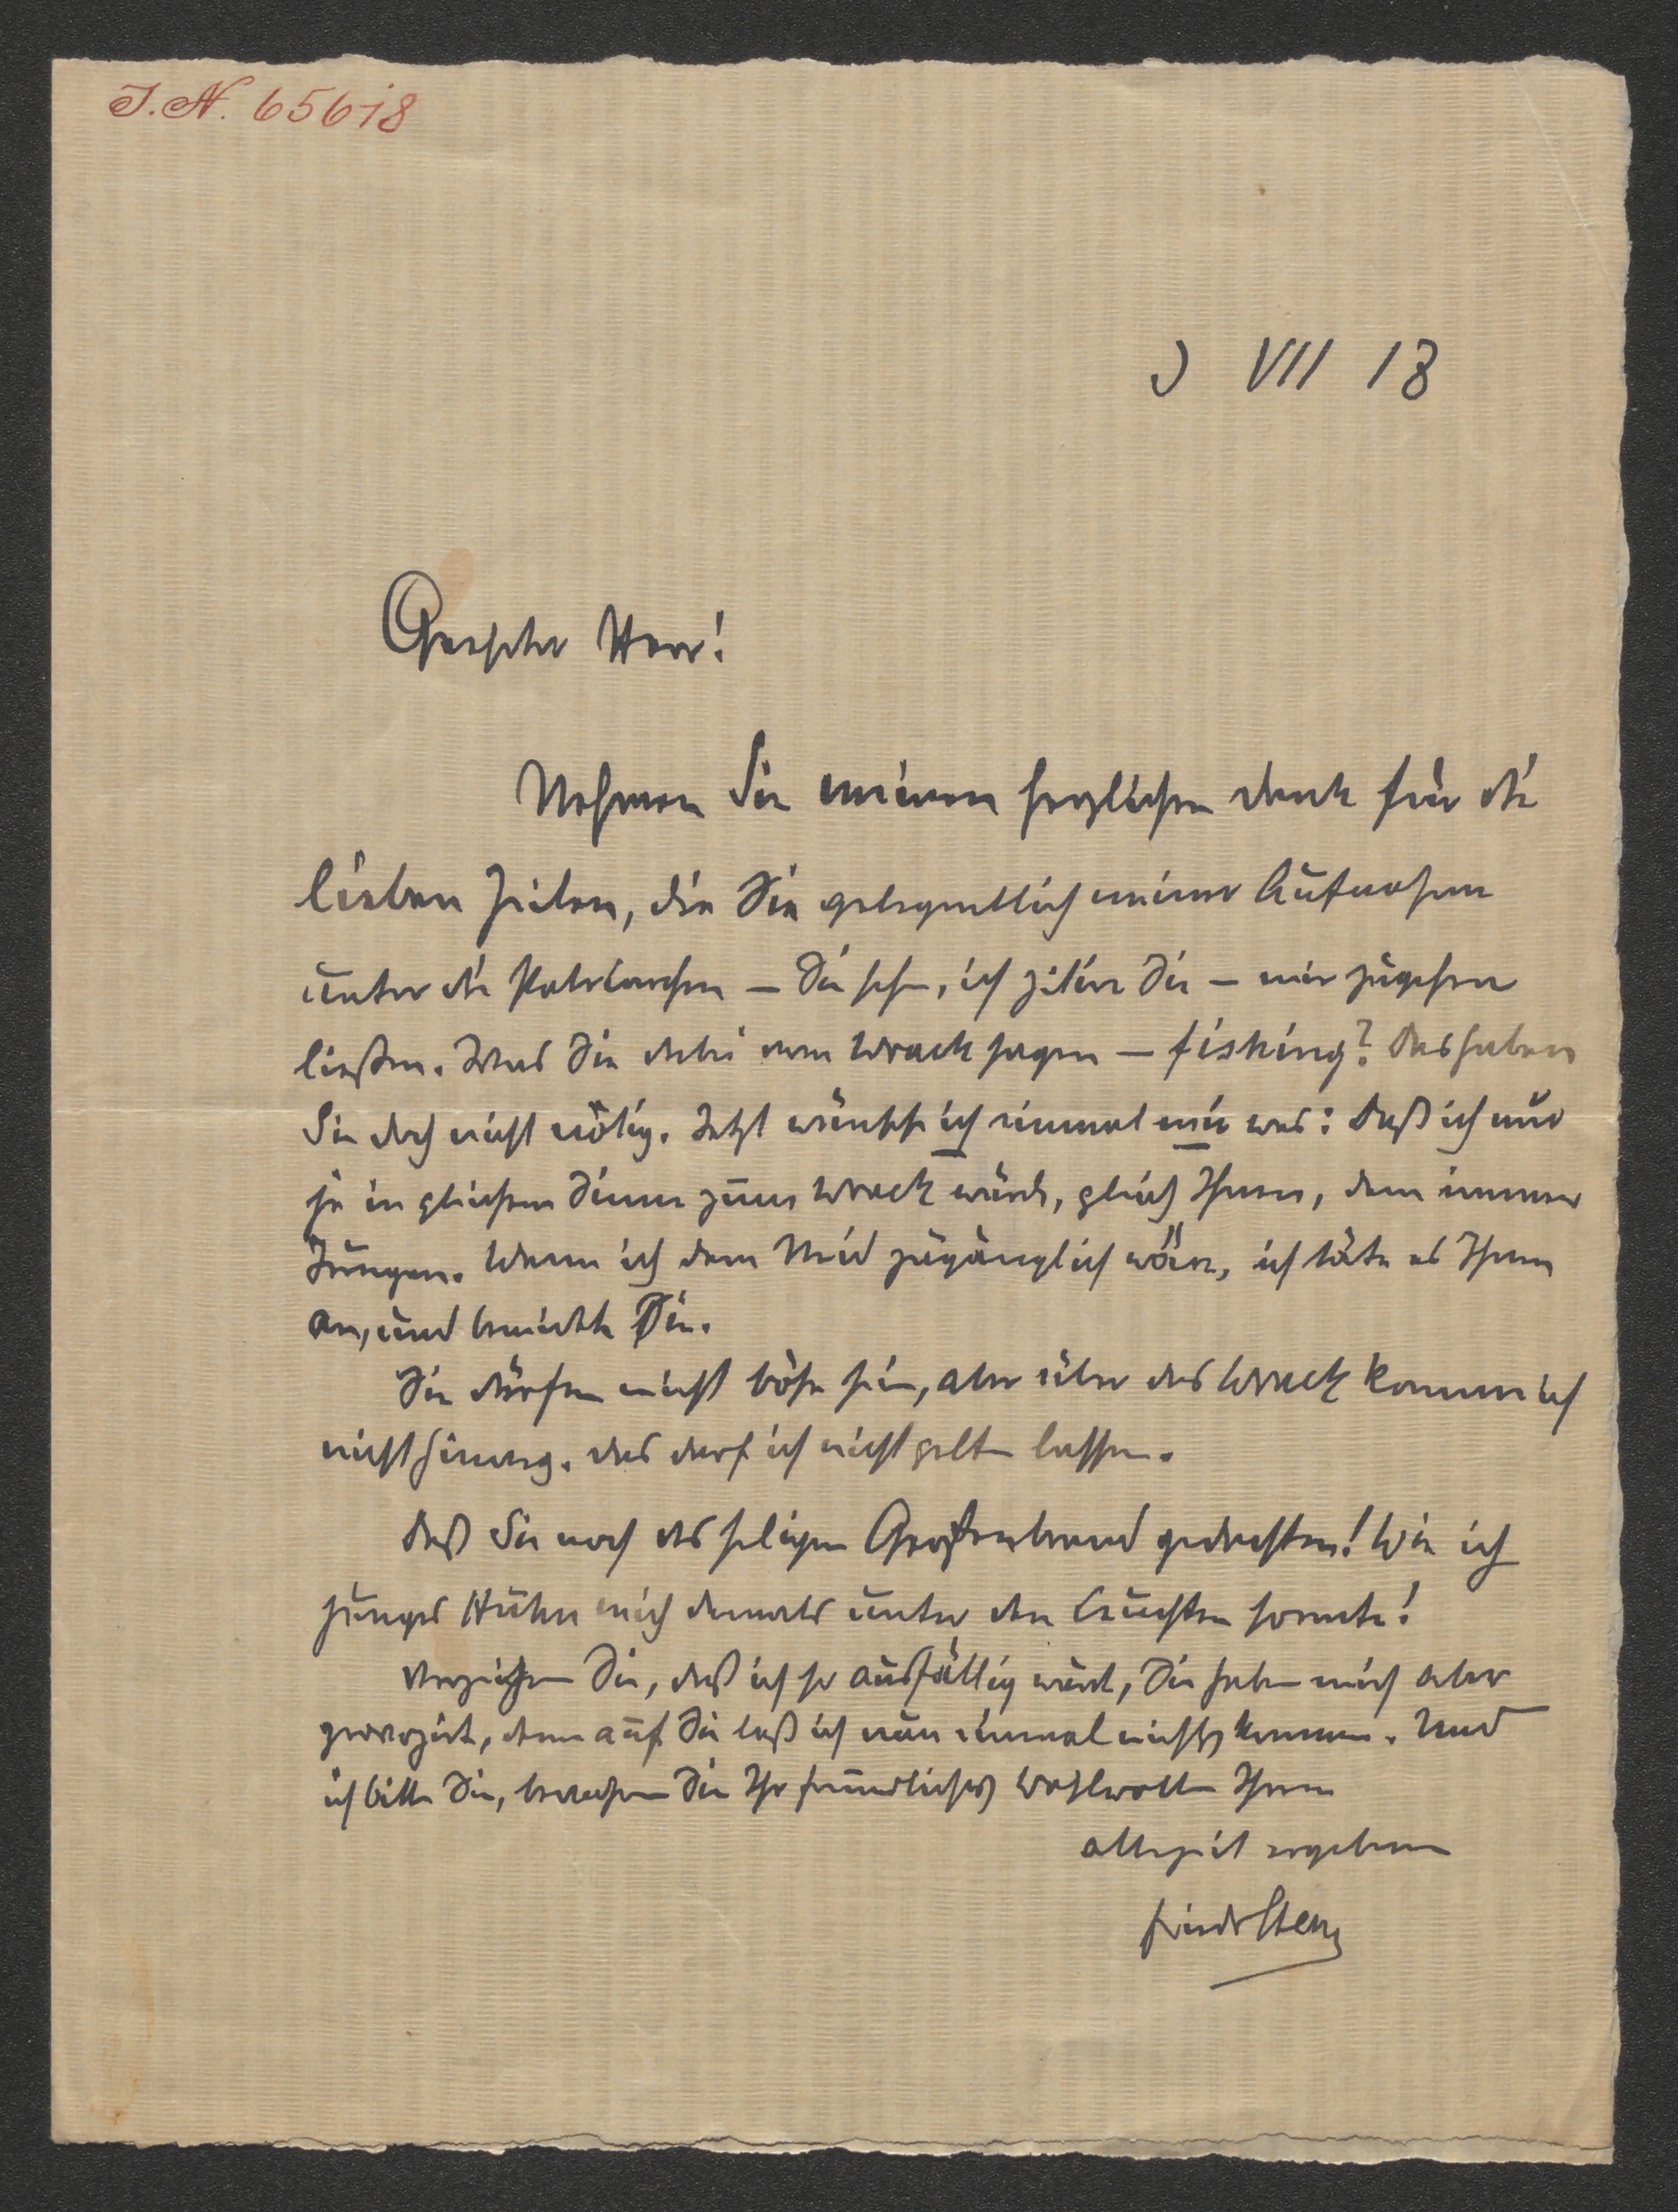 J. N. 65618
VII 13
Geehrter Herr!
Nehmen Sie meinen herzlichen Dank für die
lieben Zeilen, die Sie gelegentlich meiner Aufnahme
unter die Patriarchen – Sie sehn, ich zitire Sie – mir zugehen
ließen. Was Sie dabei vom Wrack sagen – fishing? Das haben
Sie doch nicht nötig. Jetzt wünsche ich einmal mir was: Daß ich nur
je in gleichem Sinne zum Wrack würde, gleich Ihnen, dem immer
Jungen. Wenn ich dem Neid zugänglich wäre, ich täte es Ihnen
an, und beneidete Sie.
Sie dürfen nicht böse sein, aber über das Wrack komme ich
nicht hinweg. Das darf ich nicht gelten lassen.
Daß Sie noch des seligen gedachten! Wie ich
junges Huhn mich damals unter den Leuchten sonnte!
Verzeihen Sie, daß ich so ausfällig ward, Sie haben mich aber
provozirt, denn auf Sie laß ich nun einmal nichts kommen. Und
ich bitte Sie, bewahren Sie Ihr freundliches Wohlwollen Ihrem
allezeit ergebenen